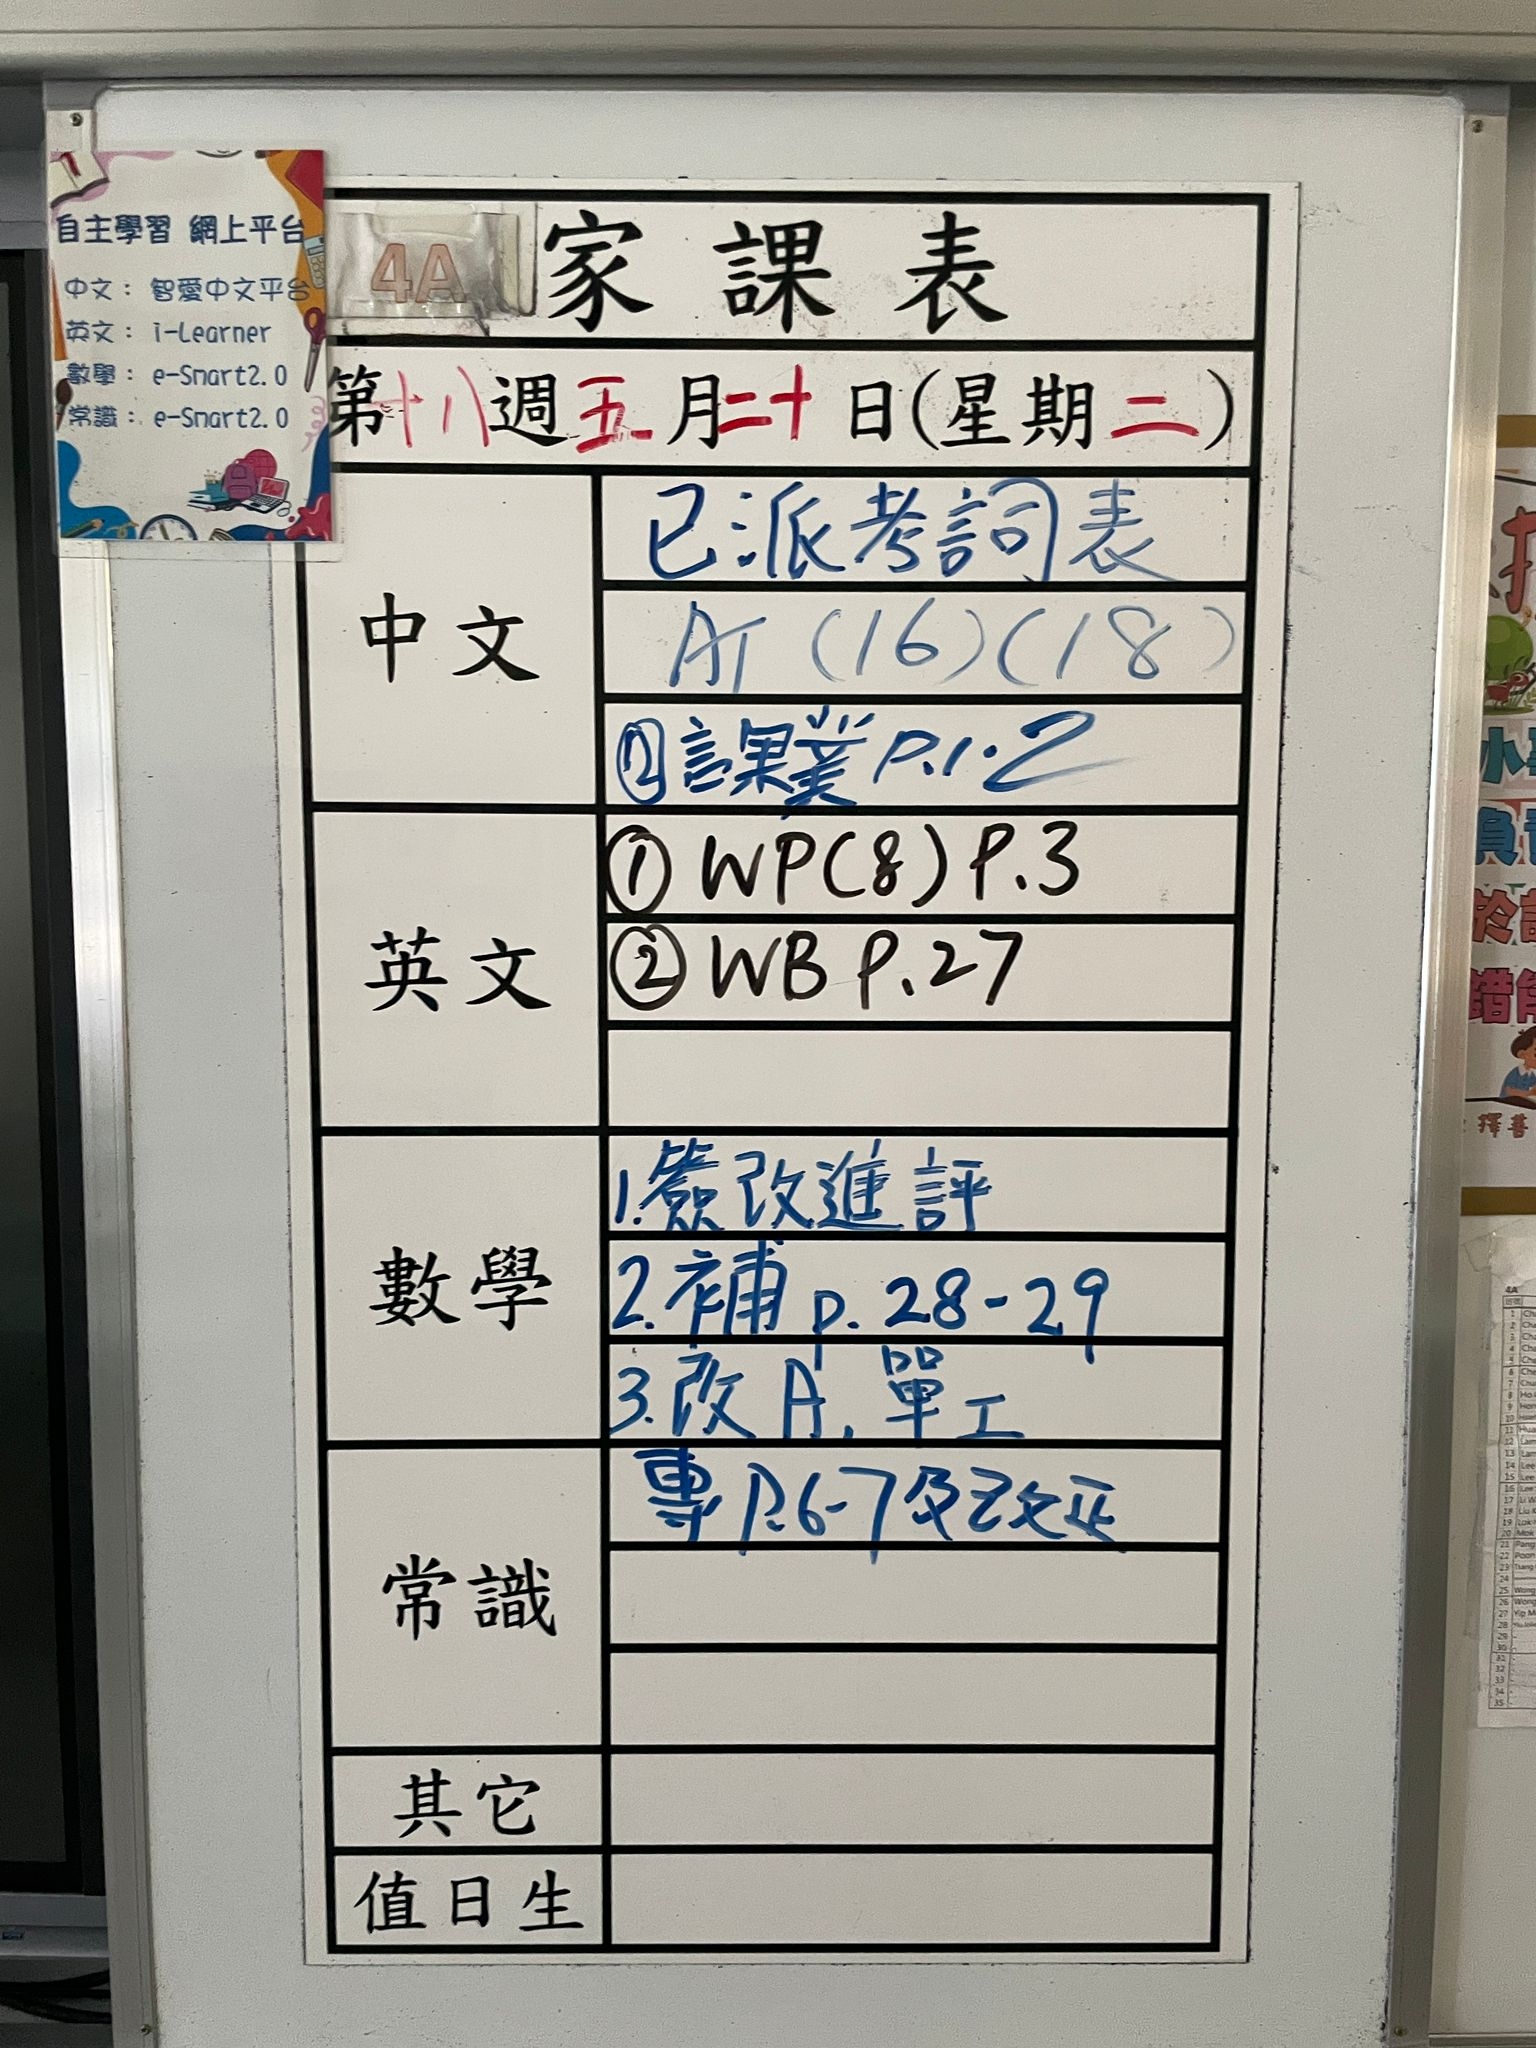 自主學習 網上平台
中文： 智愛中文平台
英文： i-Learner
數學： e-Smart2.0
常識： e-Smart2.0
4A 家課表
第十八週五月二十日(星期二)
中文
已派考詞表
AT (16)(18)
課業 P.1-2
英文
① WP(8) P.3
② WB P.27
數學
1.簽改進評
2.補 p. 28-29
3.改 A, 單工
常識
專 P.6-7及改正
其它
值日生
小
負
於
錯
擇善
4A